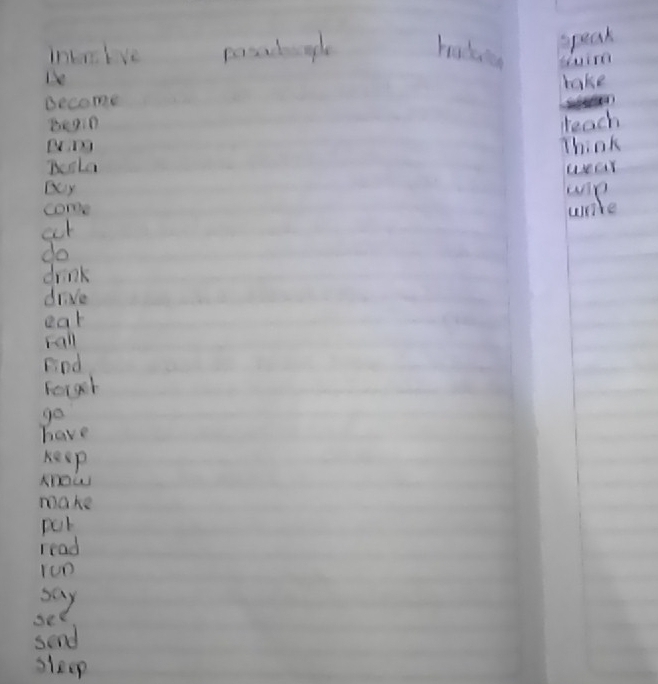 pasadosimple
be
Become
Begin
Buy
come
cut
do
drink
drive
eat
Fall
Find
Forget
go
have
keep
know
make
put
read
run
say
see
send
sleep
speak
swim
take
teach
Think
wear
write